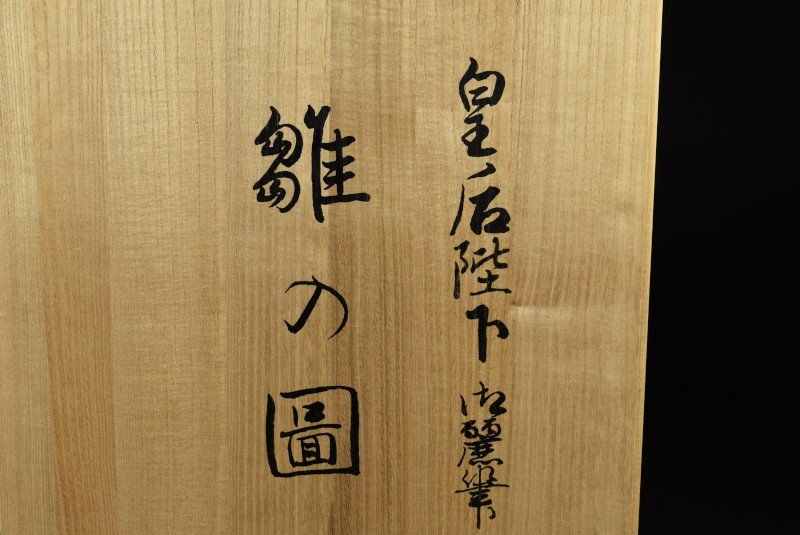 皇后陛下御麗筆
雛の圖